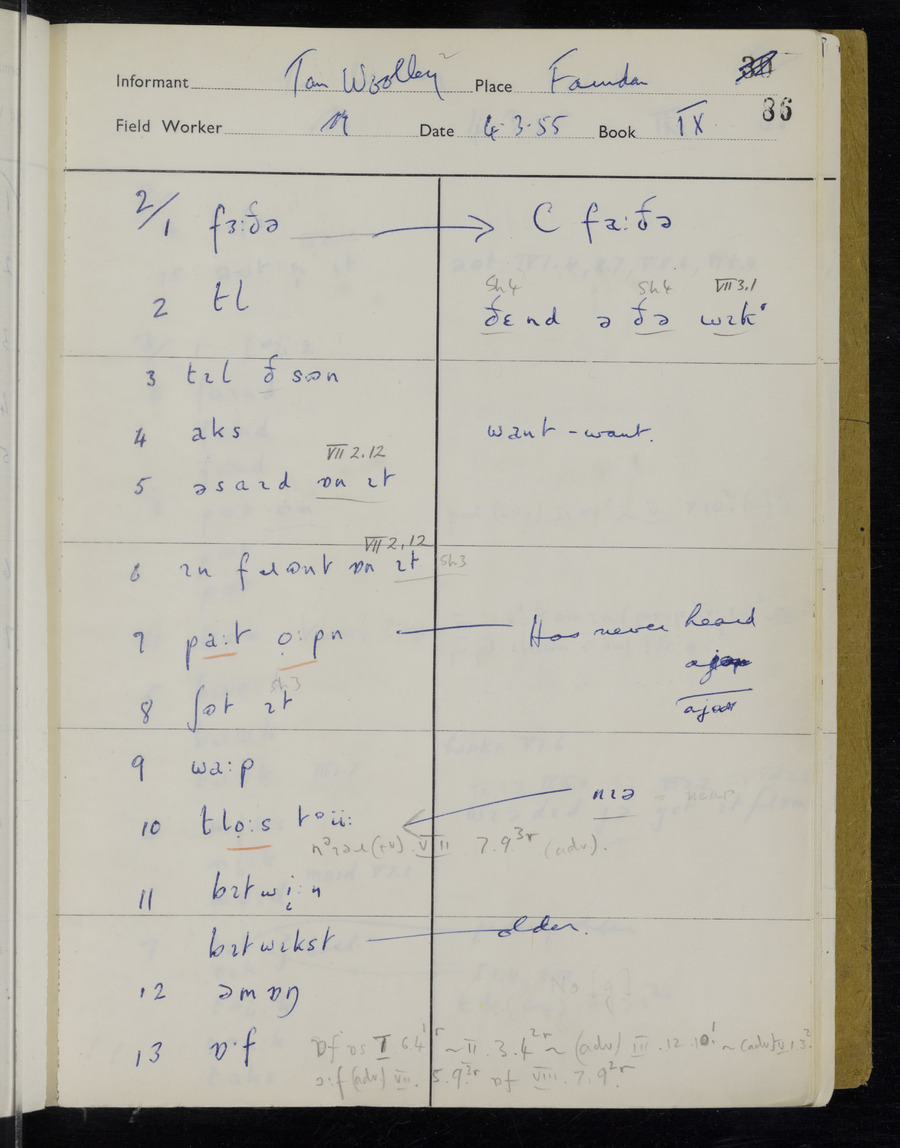 Informant Tom Woolley Place Farndon
86
Field Worker M Date 4.3.55 Book IX
2/1 fɜːðə → C faːðə
2 tl
Sh4 Sh4 VII 3.1
ðɛnd ə ðə wɪkˑ
3 tɪl ð sɒn
4 aks want - want.
VII 2.12
5 əsaɪd ɒn ɪt
VII 2,12
6 ɪn fɹɒnt ɒn ɪt Sh3
7 paːt oːpn Has never heard
Sh3
8 ʃɒt ɪt ajar
9 waːp
10 tloːs nɪə - near
VII 7.9³ʳ (adv).
11 bɪtwiːn
bɪtwɪkst older.
12 əmɒŋ
13 ɒˑf ɒf ɒs I 6.4¹ʳ ~ II. 3.4²ʳ ~ (adv) III. 12.10¹ ~ (adv) 1.3²
ɔːf (adv) VII. 5.9³ʳ ɒf VIII. 7.9²ʳ